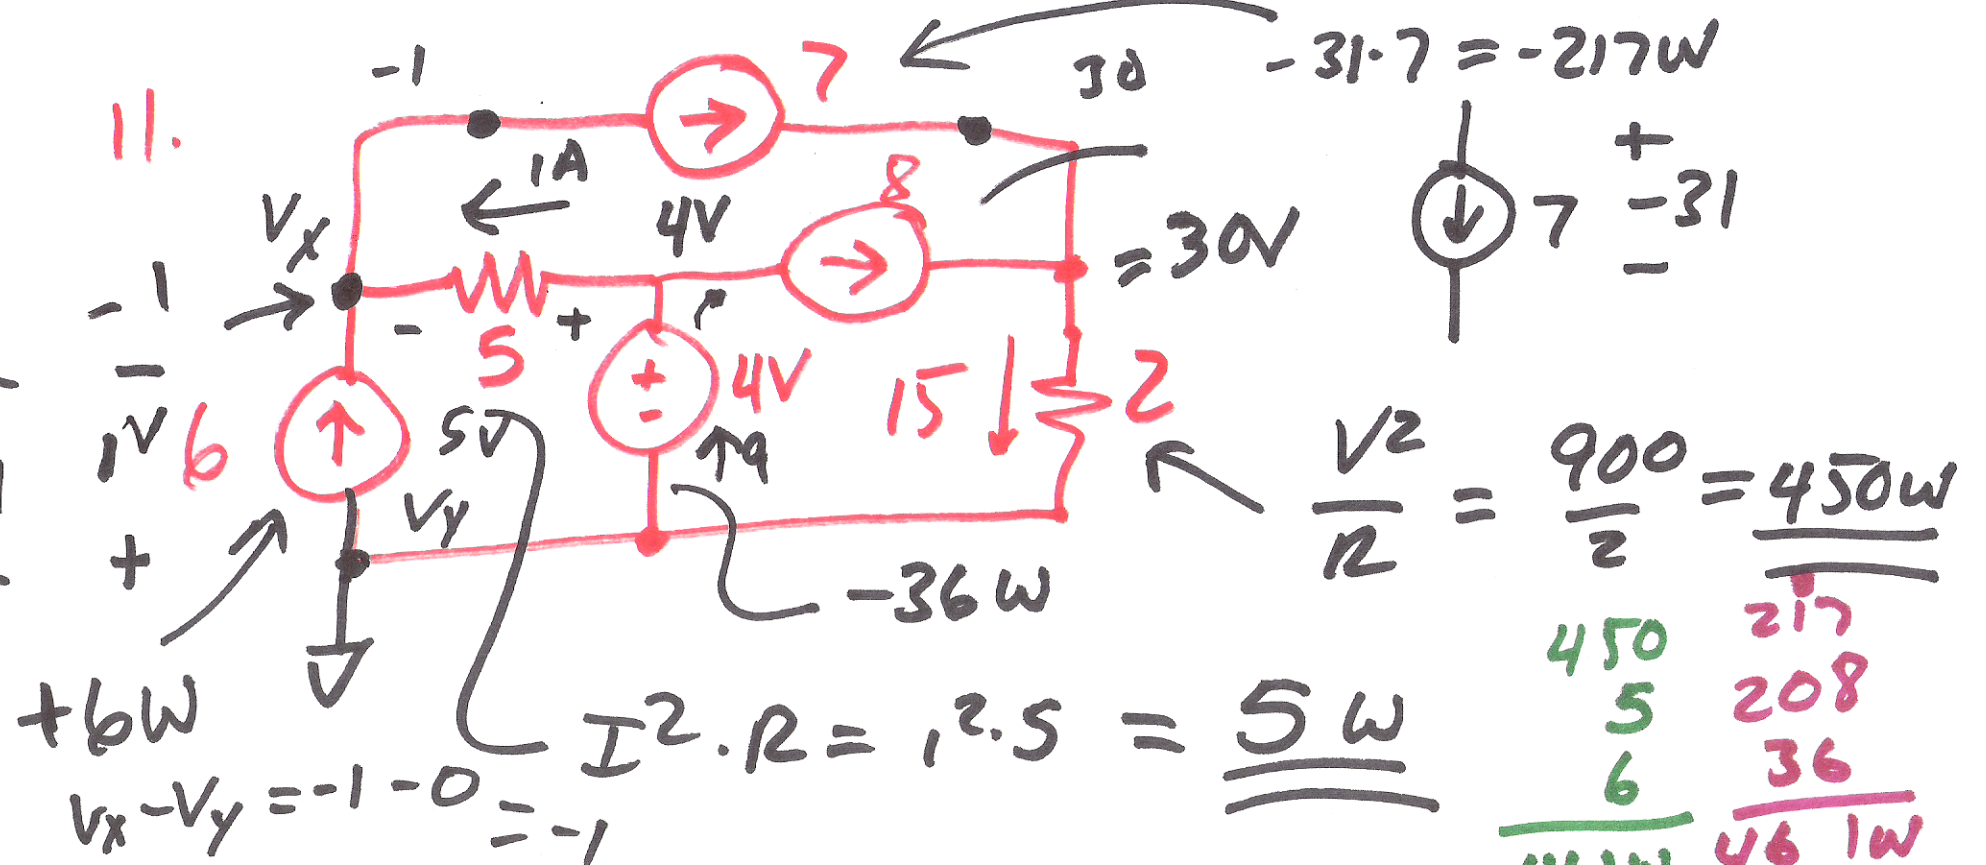 11.
-1
7
30
-31·7 = -217W
1A
4V
8
+
7 -31
-
Vx
= 30V
-1
- +
5
-
1V
6
5V
+
-
4V
↑9
15
2
V²/R = 900/2 = 450W
Vy
+
-36W
+6W
I²·R = 1²·5 = 5W
Vx-Vy = -1-0
= -1
450
5
6
461W
217
208
36
461W